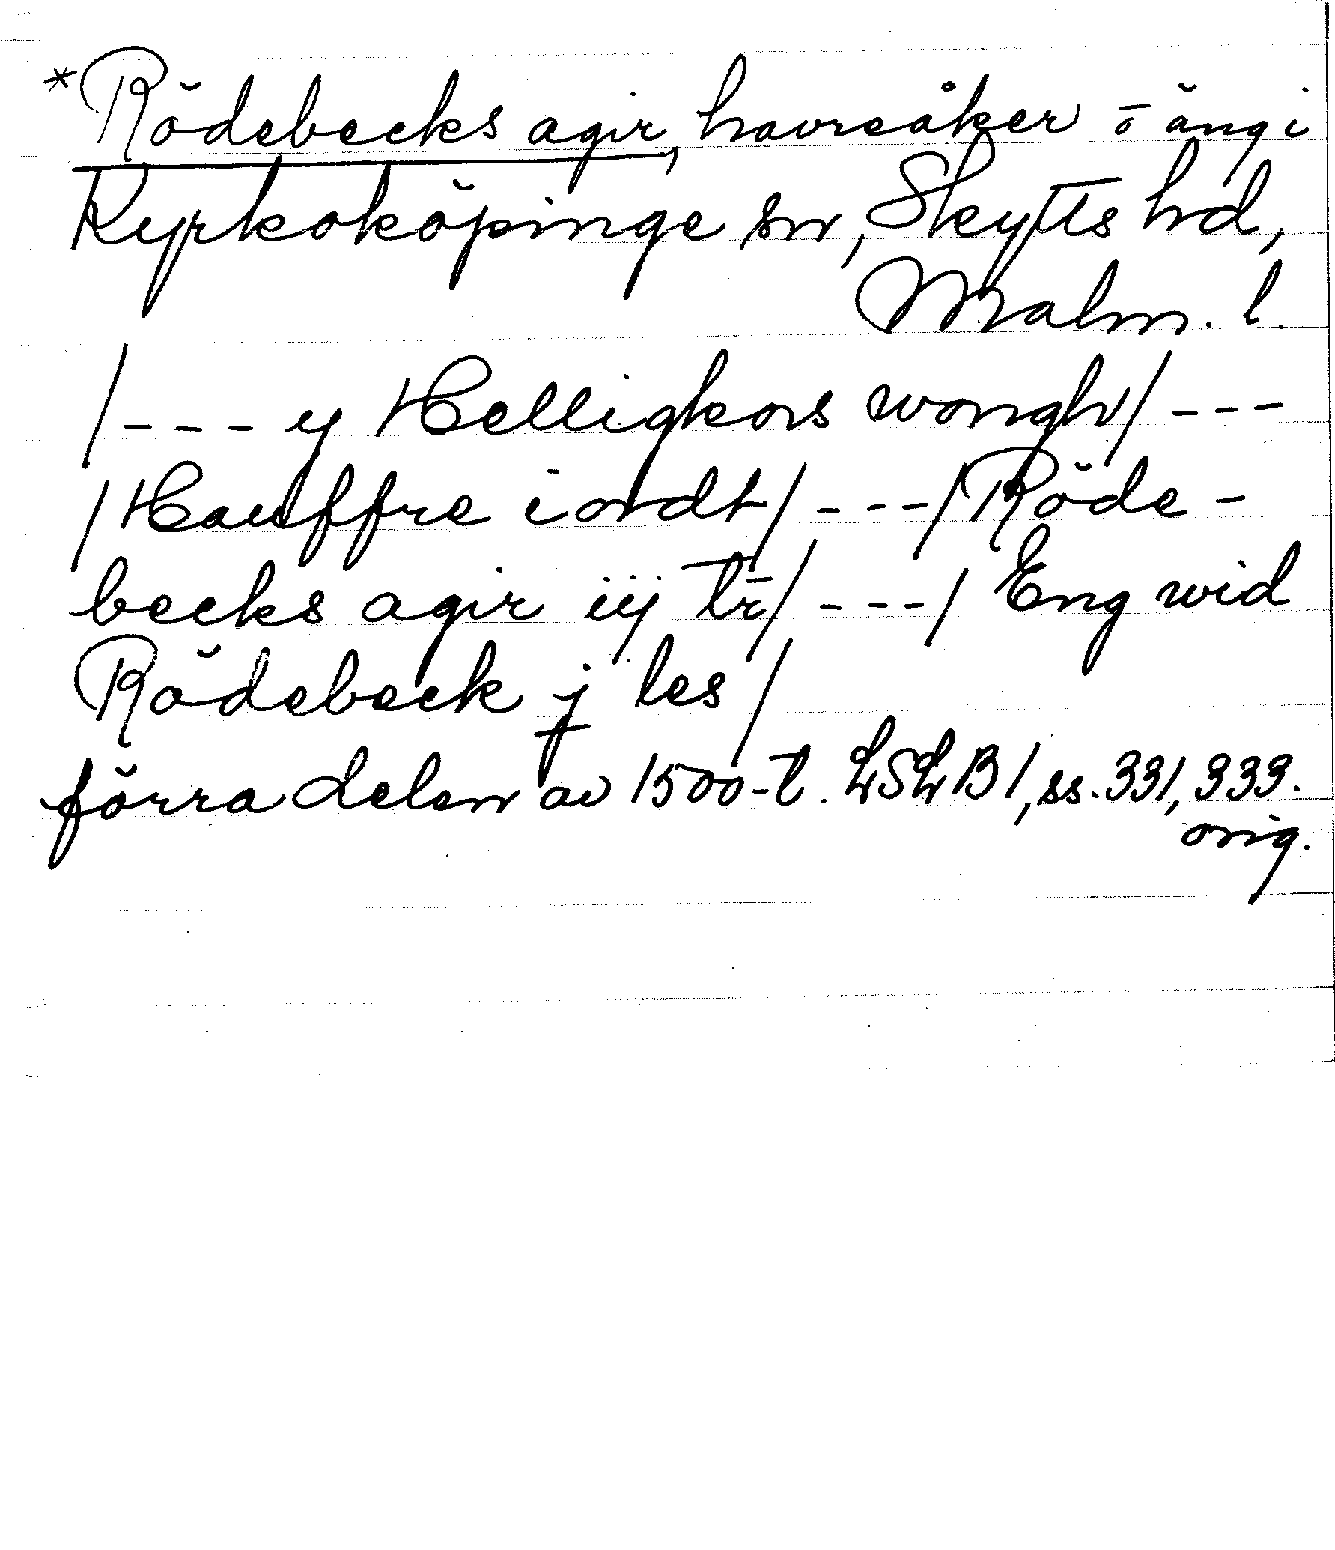 *Rödebecks agir, havreåker o äng i
Kyrkoköpinge sn, Skytts hd,
Malm. l.
/--- y Helligkors wongh/ ---
/Hauffre iordt/ ---/Röde-
becks agir iij tr̄/ ---/ Eng wid
Rödebeck j les/
förra delen av 1500-t. LSLB1, ss. 331, 333.
orig.